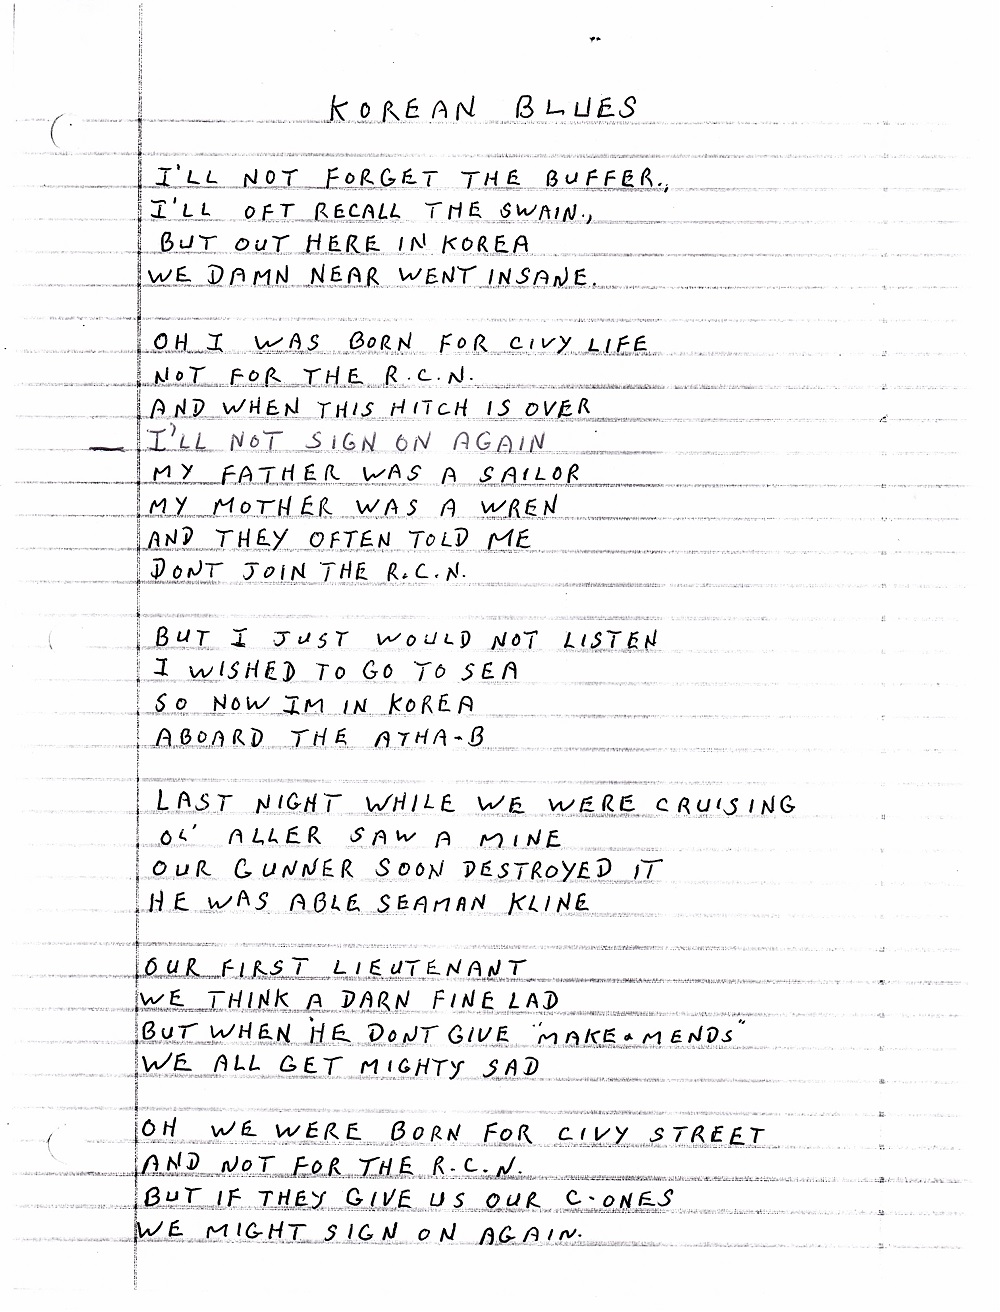 KOREAN BLUES
I'LL NOT FORGET THE BUFFER.,
I'LL OFT RECALL THE SWAIN.,
BUT OUT HERE IN KOREA
WE DAMN NEAR WENT INSANE.
OH I WAS BORN FOR CIVY LIFE
NOT FOR THE R.C.N.
AND WHEN THIS HITCH IS OVER
I'LL NOT SIGN ON AGAIN
MY FATHER WAS A SAILOR
MY MOTHER WAS A WREN
AND THEY OFTEN TOLD ME
DONT JOIN THE R.C.N.
BUT I JUST WOULD NOT LISTEN
I WISHED TO GO TO SEA
SO NOW IM IN KOREA
ABOARD THE ATHA-B
LAST NIGHT WHILE WE WERE CRUISING
OL' ALLER SAW A MINE
OUR GUNNER SOON DESTROYED IT
HE WAS ABLE SEAMAN KLINE
OUR FIRST LIEUTENANT
WE THINK A DARN FINE LAD
BUT WHEN HE DONT GIVE "MAKE & MENDS"
WE ALL GET MIGHTY SAD
OH WE WERE BORN FOR CIVY STREET
AND NOT FOR THE R.C.N.
BUT IF THEY GIVE US OUR C-ONES
WE MIGHT SIGN ON AGAIN.